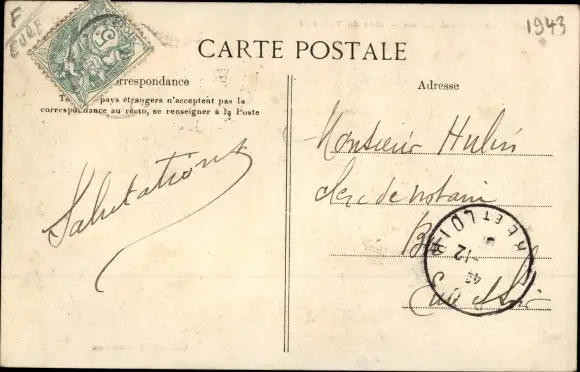 F
1943
CARTE POSTALE
Correspondance
Tous les pays étrangers n'acceptent pas la
correspondance au recto, se renseigner à la Poste
Adresse
Salutations
Monsieur Hulin
clerc de notaire
RE ET LOIR
-12
43